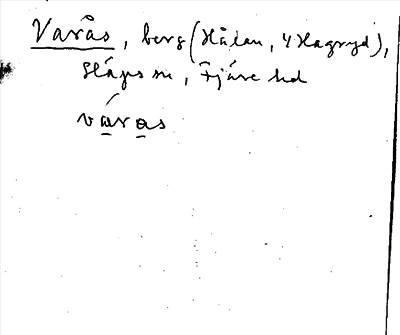 Varås, berg (Hålan, 4 Hagryd),
Släps sn, Fjäre hd
váras